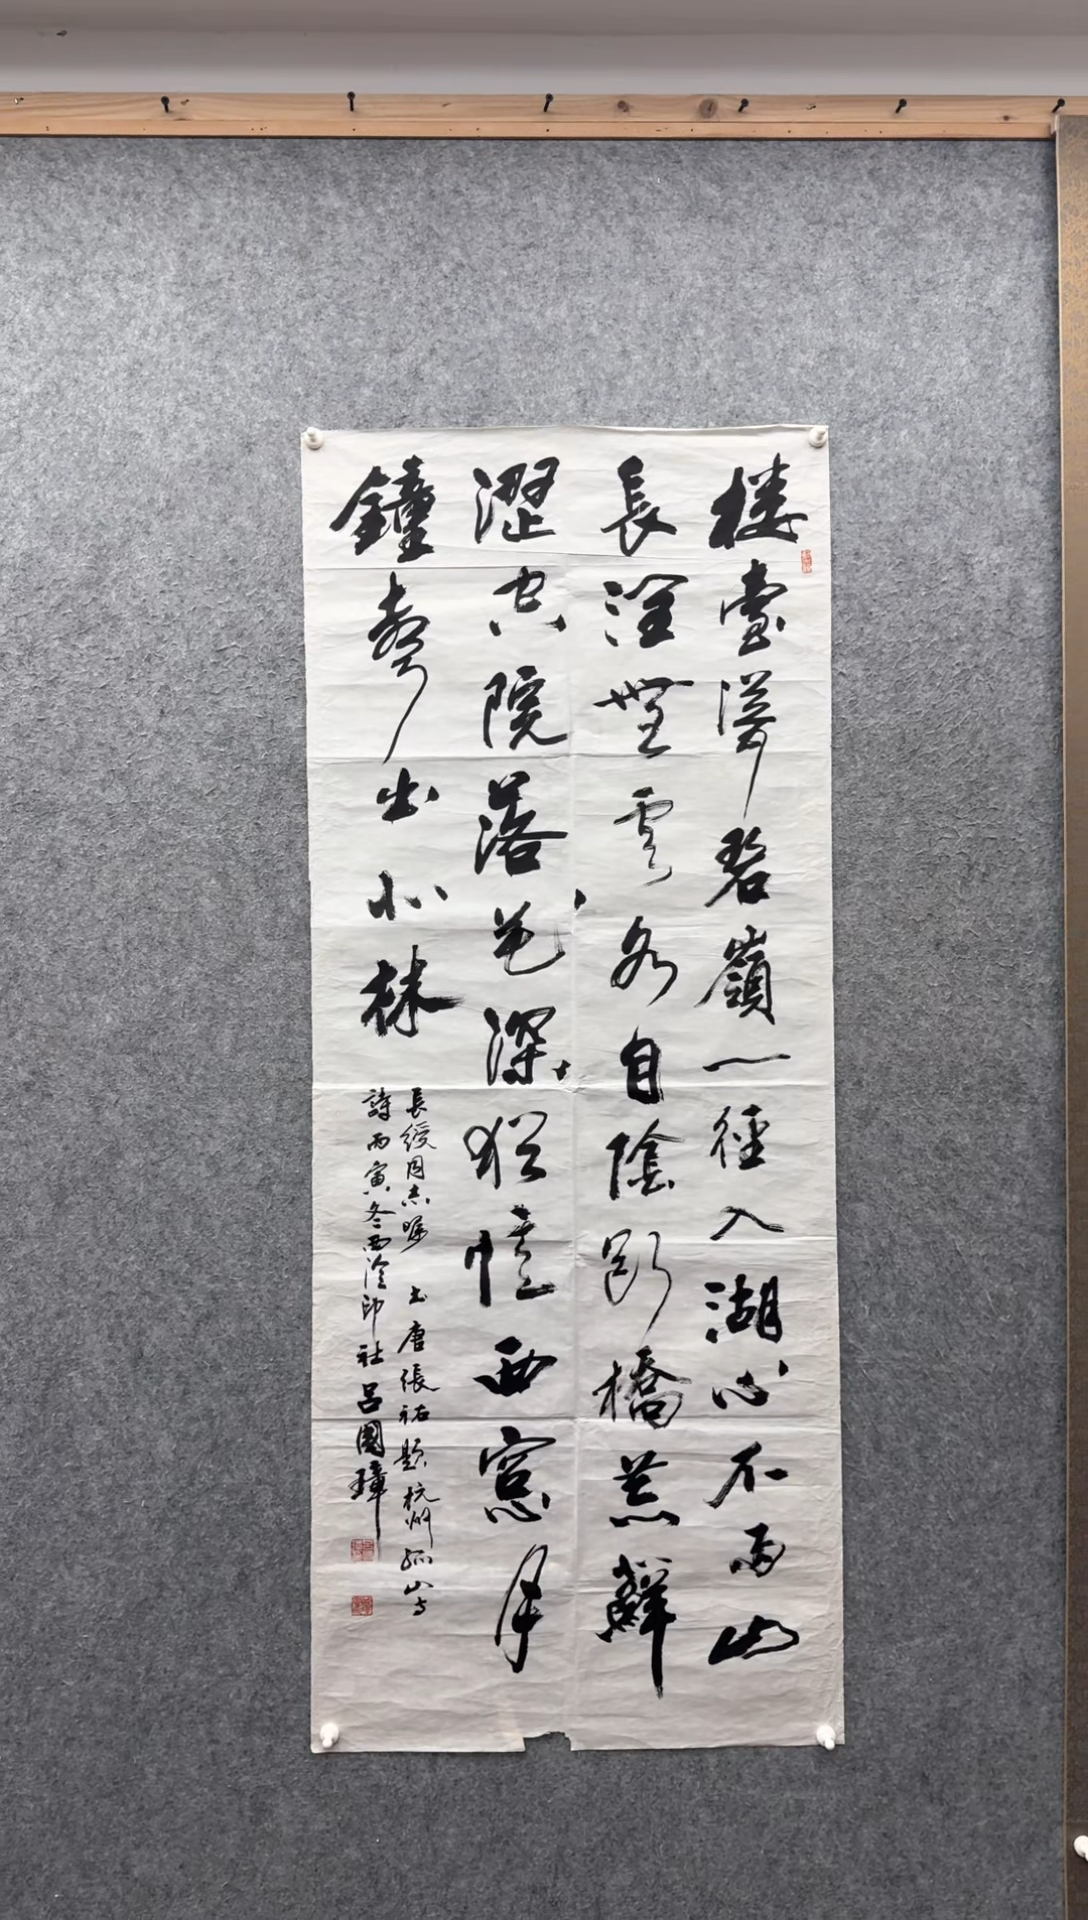 楼臺聳碧嶺一徑入湖心不雨山
長潤無雲水自陰斷橋荒蘚
澀空院落花深猶憶西窓月
鐘聲出北林
長綬同志囑 書唐張祐題杭州孤山寺
詩丙寅冬西泠印社呂國璋